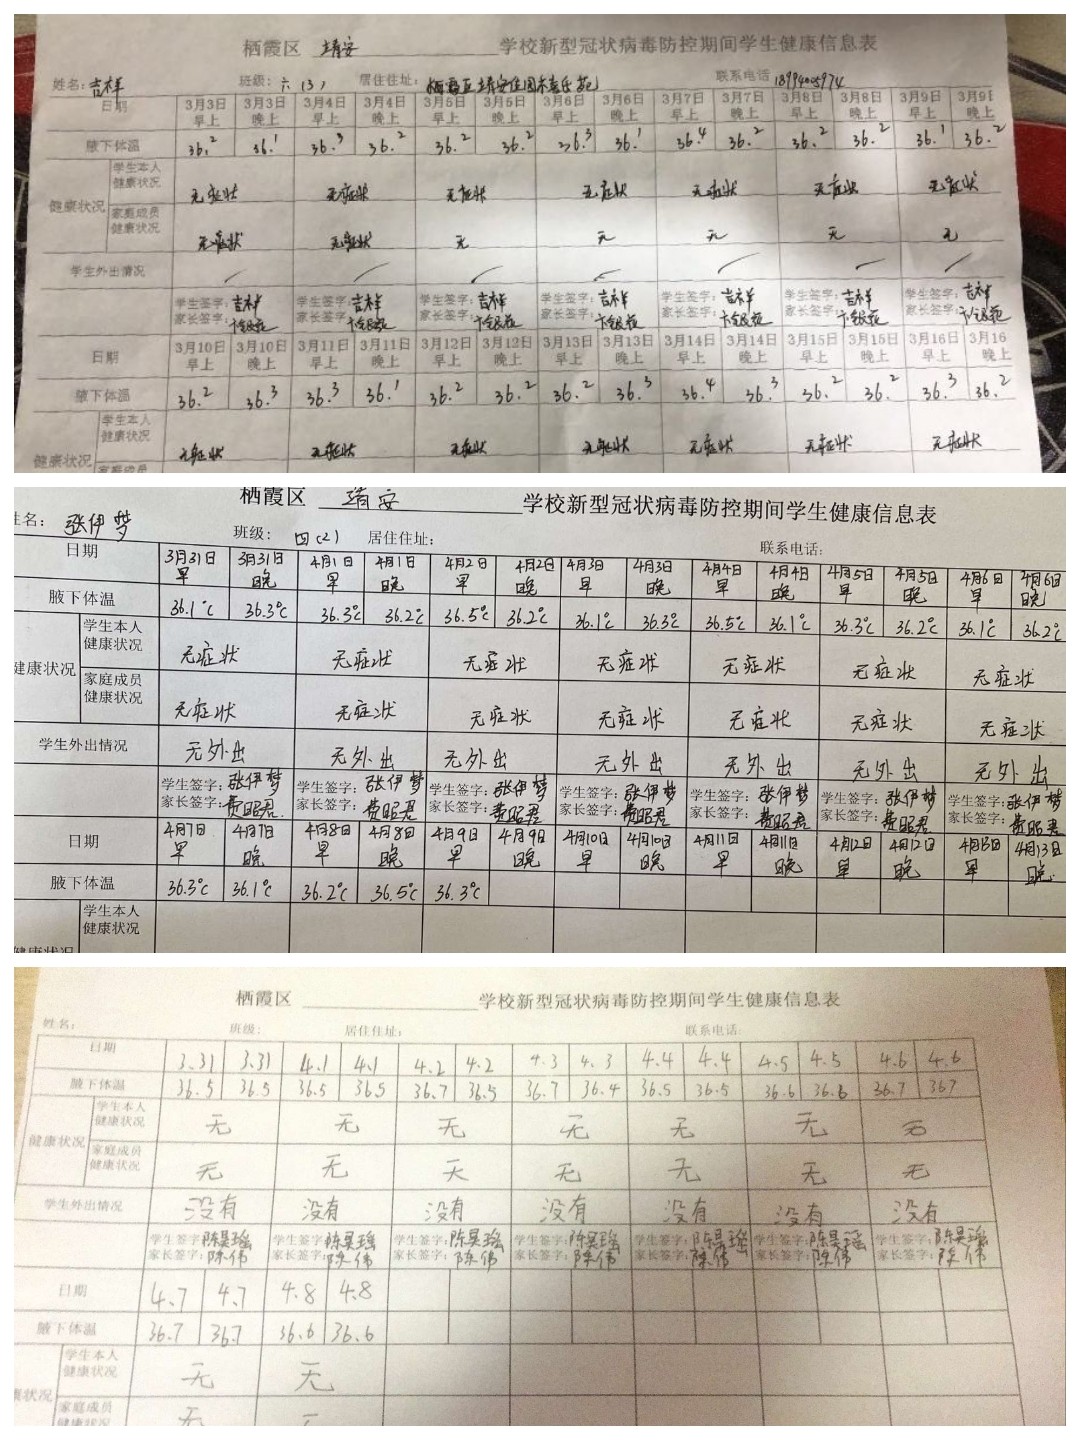 栖霞区 靖安 学校新型冠状病毒防控期间学生健康信息表
姓名：吉祥 班级：六（3） 居住住址： 联系电话
日期 3月3日早上 3月3日晚上 3月4日早上 3月4日晚上 3月5日早上 3月5日晚上 3月6日早上 3月6日晚上 3月7日早上 3月7日晚上 3月8日早上 3月8日晚上 3月9日早上 3月9日晚上
腋下体温 36.2 36.1 36.3 36.2 36.2 36.2 36.3 36.1 36.4 36.2 36.2 36.2 36.1 36.2
健康状况 学生本人健康状况 无症状 无症状 无症状 无症状 无症状 无症状 无症状
家庭成员健康状况 无症状 无症状 无 无 无 无 无
学生外出情况
学生签字：吉祥 学生签字：吉祥 学生签字：吉祥 学生签字：吉祥 学生签字：吉祥 学生签字：吉祥 学生签字：吉祥
家长签字： 家长签字： 家长签字： 家长签字： 家长签字： 家长签字： 家长签字：
日期 3月10日早上 3月10日晚上 3月11日早上 3月11日晚上 3月12日早上 3月12日晚上 3月13日早上 3月13日晚上 3月14日早上 3月14日晚上 3月15日早上 3月15日晚上 3月16日早上 3月16晚上
腋下体温 36.2 36.3 36.3 36.1 36.2 36.2 36.2 36.3 36.4 36.3 36.2 36.2 36.3 36.2
健康状况 学生本人健康状况 无症状 无症状 无症状 无症状 无症状 无症状 无症状
家庭成员
栖霞区 靖安 学校新型冠状病毒防控期间学生健康信息表
姓名：张伊梦 班级：四（2） 居住住址： 联系电话：
日期 3月31日早 3月31日晚 4月1日早 4月1日晚 4月2日早 4月2日晚 4月3日早 4月3日晚 4月4日早 4月4日晚 4月5日早 4月5日晚 4月6日早 4月6日晚
腋下体温 36.1℃ 36.3℃ 36.3℃ 36.2℃ 36.5℃ 36.2℃ 36.1℃ 36.3℃ 36.5℃ 36.1℃ 36.3℃ 36.2℃ 36.1℃ 36.2℃
健康状况 学生本人健康状况 无症状 无症状 无症状 无症状 无症状 无症状 无症状
家庭成员健康状况 无症状 无症状 无症状 无症状 无症状 无症状 无症状
学生外出情况 无外出 无外出 无外出 无外出 无外出 无外出 无外出
学生签字：张伊梦 学生签字：张伊梦 学生签字：张伊梦 学生签字：张伊梦 学生签字：张伊梦 学生签字：张伊梦 学生签字：张伊梦
家长签字：费昭君 家长签字：费昭君 家长签字：费昭君 家长签字：费昭君 家长签字：费昭君 家长签字：费昭君 家长签字：费昭君
日期 4月7日早 4月7日晚 4月8日早 4月8日晚 4月9日早 4月9日晚 4月10日早 4月10日晚 4月11日早 4月11日晚 4月12日早 4月12日晚 4月13日早 4月13日晚
腋下体温 36.3℃ 36.1℃ 36.2℃ 36.5℃ 36.3℃
健康状况 学生本人健康状况
栖霞区 学校新型冠状病毒防控期间学生健康信息表
姓名： 班级： 居住住址： 联系电话
日期 3.31 3.31 4.1 4.1 4.2 4.2 4.3 4.3 4.4 4.4 4.5 4.5 4.6 4.6
腋下体温 36.5 36.5 36.5 36.5 36.7 36.5 36.7 36.4 36.5 36.5 36.6 36.6 36.7 36.7
健康状况 学生本人健康状况 无 无 无 无 无 无 无
家庭成员健康状况 无 无 无 无 无 无 无
学生外出情况 没有 没有 没有 没有 没有 没有 没有
学生签字：陈昊瑶 学生签字：陈昊瑶 学生签字：陈昊瑶 学生签字：陈昊瑶 学生签字：陈昊瑶 学生签字：陈昊瑶 学生签字：陈昊瑶
家长签字：陈伟 家长签字：陈伟 家长签字：陈伟 家长签字：陈伟 家长签字：陈伟 家长签字：陈伟 家长签字：陈伟
日期 4.7 4.7 4.8 4.8
腋下体温 36.7 36.7 36.6 36.6
健康状况 学生本人健康状况 无 无
家庭成员健康状况 无